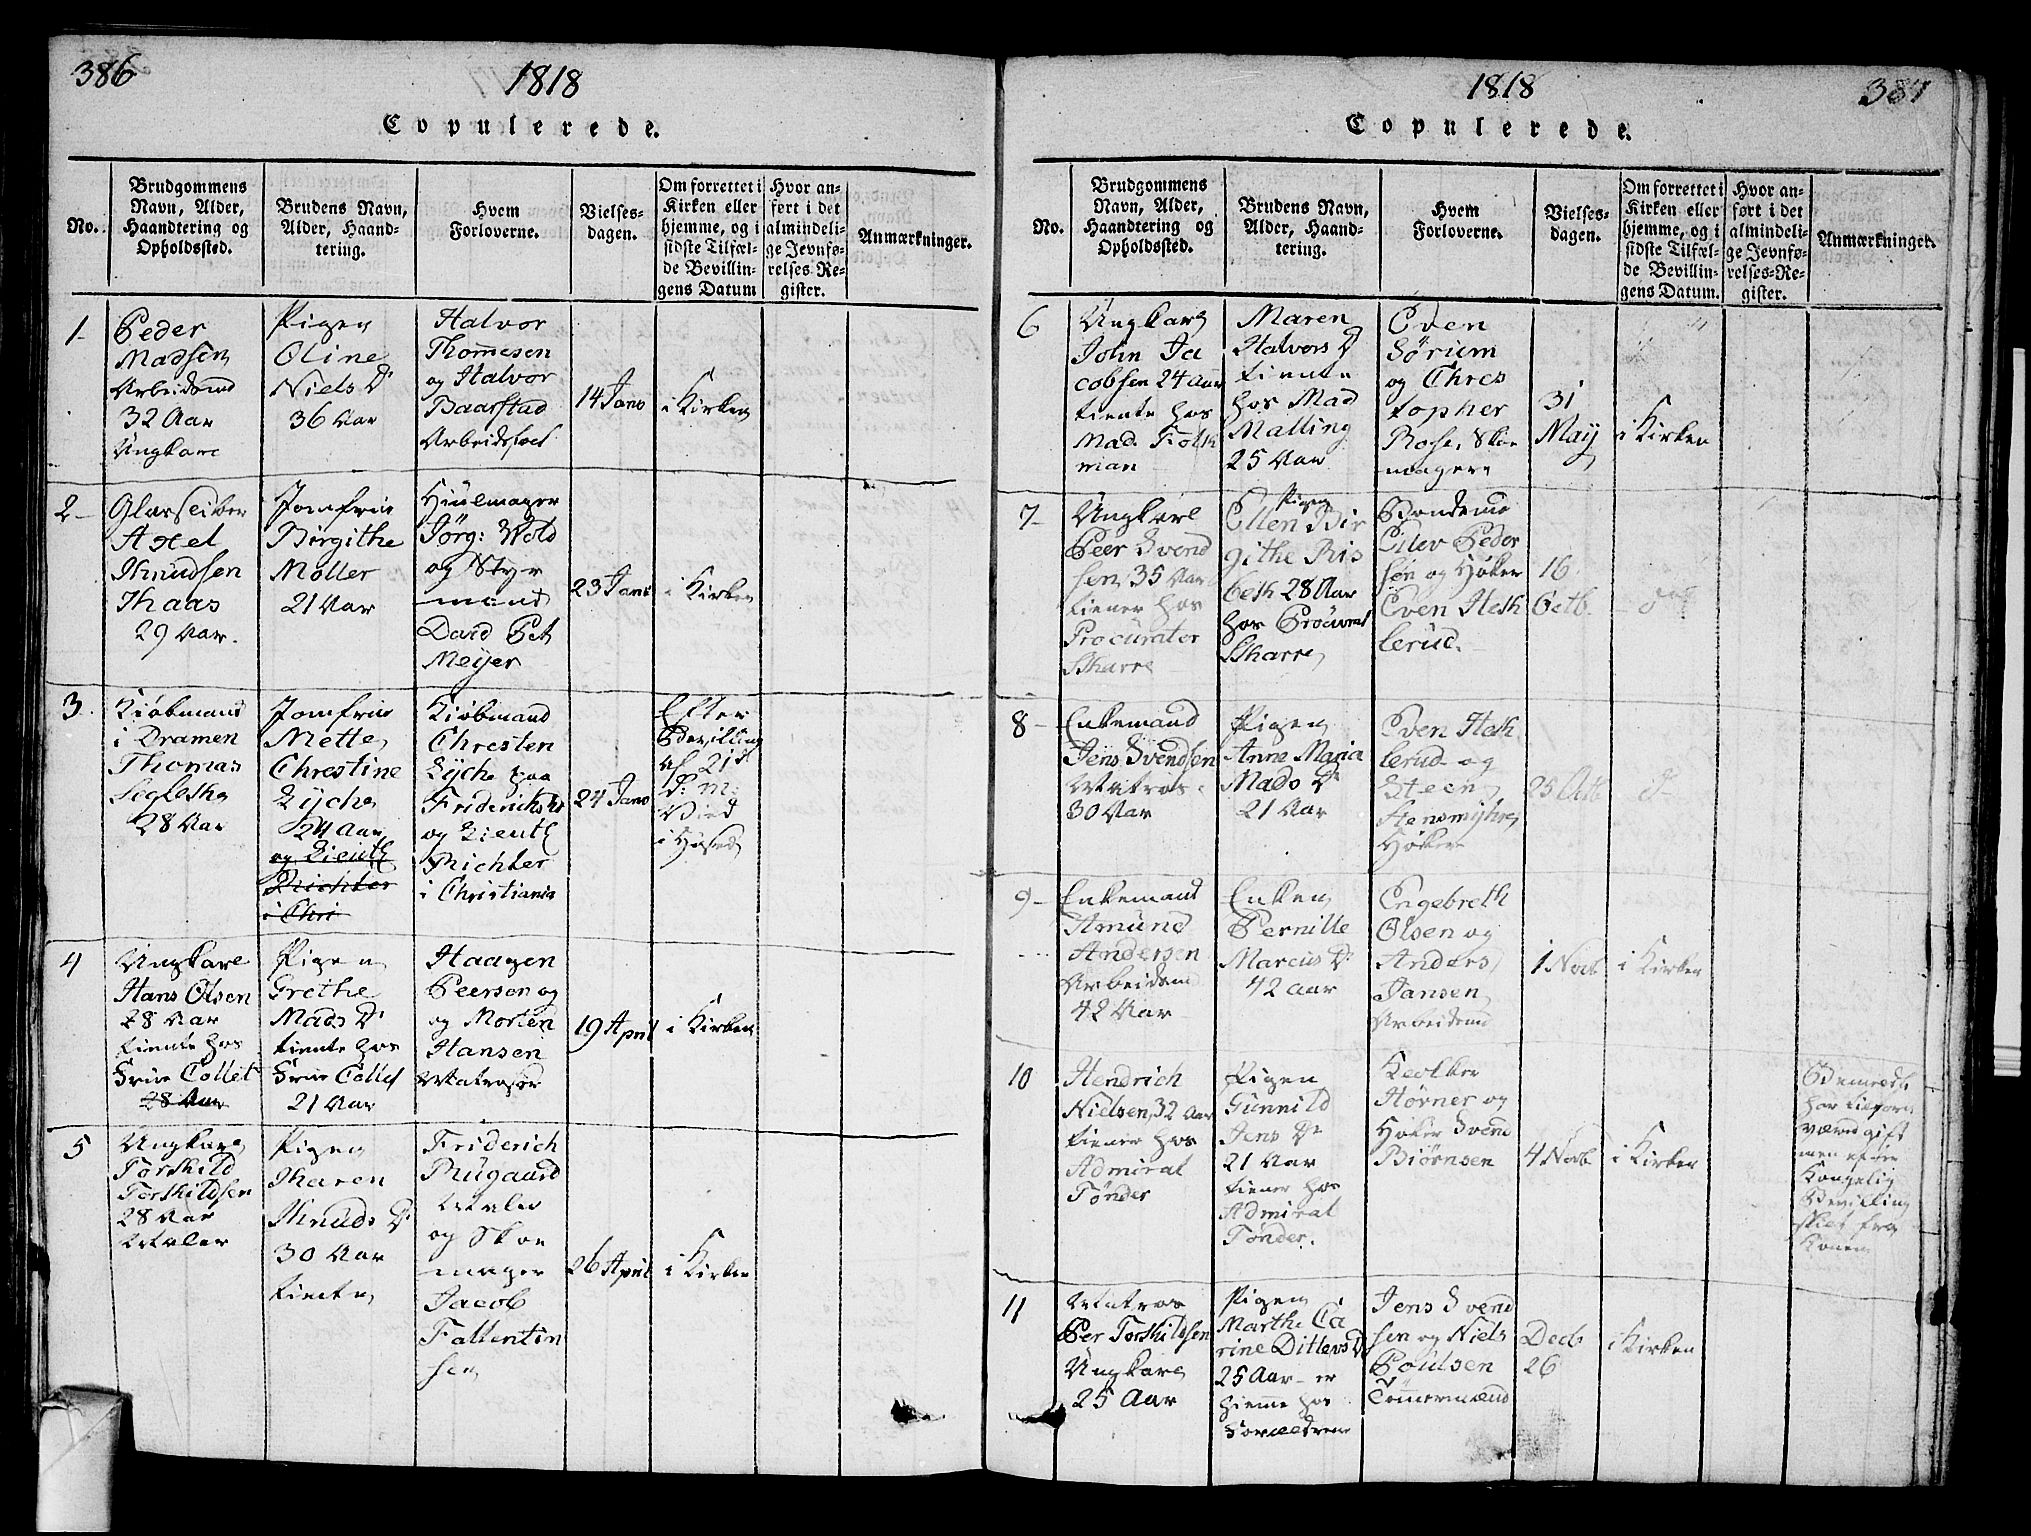 386
1818
Copulerede.
No.
Brudgommens Navn, Alder, Haandtering og Opholdssted.
Brudens Navn, Alder, Haandtering.
Hvem Forloverne.
Vielsesdagen.
Om forrettet i Kirken eller hjemme, og i sidste Tilfælde Bevillingens Datum
Hvor anført i det almindelige Jevnførelses Register.
Anmærkninger.
1
Peder
Madsen
Arbeidsmd
32 Aar
Ungkarl
Pigen
Oline
Niels D.
36 Aar
Halvor
Thommesen
og Halvor
Baarstad
Arbeidsfolk
14 Janv
i Kirken
2
Axel
Knudsen
Haas
29 Aar.
Jomfrue
Birgithe
Møller
21 Aar
Hiulmager
Jørg: Wold
og Styr
mand
David Pet
Meyer
23 Janv
i Kirken
3
Kiøbmand
i Dramen
Thomas
28 Aar
Jomfrue
Mette
Chrestine
Lyche
24 Aar
og Lieutn
Richter
i Chri
Kiøbmand
Chresten
Lyche paa
og Lieutn
Richter
i Christiania
24 Janv
Efter
Bevilling
af 21de
D: M:
Vied
i Huset
4
Ungkarl
Hans Olsen
28 Aar
tiente hos
Frue Collet
28 Aar
Pigen
Grethe
Mads D.
tiente hos
Frue Collet
21 Aar
Haagen
Peersen og
og Morten
Hansen
Matroser
19 April
i Kirken
5
Ungkarl
Torkild
Torkildsen
28 Aar
Maler
Pigen
Karen
Knuds D.
30 Aar
tiente
Friderich
Rugaard
Maler
og Skoe
mager
Jacob
Fallentin
sen
26 April
i Kirken
1818
387
Copulerede.
No.
Brudgommens Navn, Alder, Haandtering og Opholdssted.
Brudens Navn, Alder, Haandtering.
Hvem Forloverne.
Vielsesdagen.
Om forrettet i Kirken eller hjemme, og i sidste Tilfælde Bevillingens Datum.
Hvor anført i det almindelige Jevnførelses-Register.
Anmærkninger.
6
Ungkarl
John Ja
cobsen 24 Aar
tiente hos
Mad. Folk
man
Maren
Halvors D.
tiente
hos Mad
Malling
25 Aar
Even
Sørium
og Chres
topher
Rose, Skoe
magere
31
May
i Kirken
7
Ungkarl
Peer Svend
sen, 35 Aar
tiener hos
Procurator
Skarre
Pigen
Ellen Bir
githe Ris
beth 28 Aar
hos Procurat
Skarre
Bondemd
Eilev Peder
søn og Høker
Even Heth
lerud.
16
Octb.
do
8
Enkemand
Jens Svendsen
Matros
30 Aar
Pigen
Anne Maria
Mads D.
21 Aar
Even Heth
lerud og
Steen
Høker
25 Octb
do
9
Enkemand
Amund
Andersen
Arbeidsmd
42 Aar
Enken
Pernille
Marcus D.
42 Aar
Engebreth
Olsen og
Anders
Jansen
Arbeidsmd
1 Novb
i Kirken
10
Hendrich
Nielsen, 32 Aar
tiener hos
Admiral
Tønder
Pigen
Gunnild
Jens D.
21 Aar
tiener hos
Admiral
Tønder.
Klokker
Hørner og
Høker Svend
Biørnsen
4 Novb
i Kirken
har tilforn
været gift
men efter
Kongelig
Bevilling
skilt fra
Konen
11
Matros
Per Torkildsen
Ungkarl
25 Aar
Pigen
Marthe Ca
rine Ditlevs D.
25 Aar er
hiemme hos
Forældrene
Jens Svend
sen og Niels
Poulsen
Tømmermænd
Decb
26
i Kirken